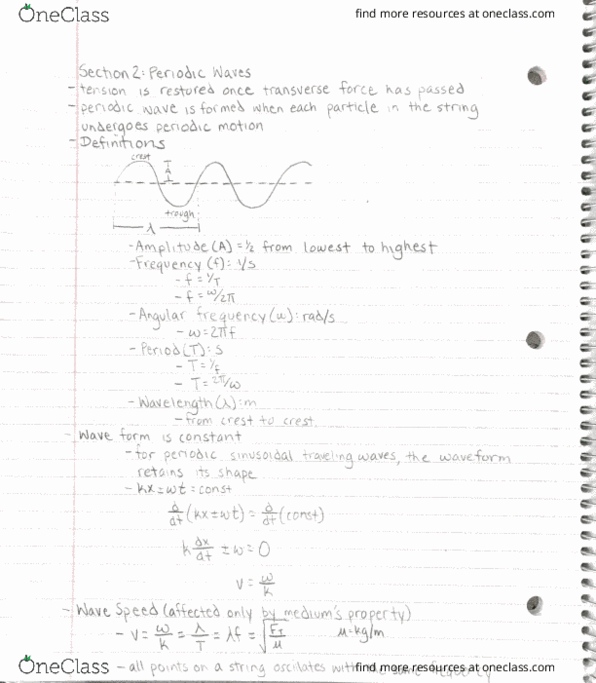 OneClass
find more resources at oneclass.com
Section 2: Periodic Waves
- tension is restored once transverse force has passed
- periodic wave is formed when each particle in the string
undergoes periodic motion
- Definitions
crest
A
trough
λ
- Amplitude (A) = 1/2 from lowest to highest
- Frequency (f): 1/s
- f = 1/T
- f = ω/2π
- Angular frequency (ω): rad/s
- ω = 2πf
- Period (T): s
- T = 1/f
- T = 2π/ω
- Wavelength (λ): m
- from crest to crest
- Wave form is constant
- for periodic sinusoidal traveling waves, the waveform
retains its shape
- kx ± ωt = const
d/dt (kx ± ωt) = d/dt (const)
k dx/dt ± ω = 0
v = ω/k
- Wave Speed (affected only by medium's property)
- v = ω/k = λ/T = λf = √(F_T/μ) μ = kg/m
OneClass
- all points on a string oscillates with the same frequency
find more resources at oneclass.com